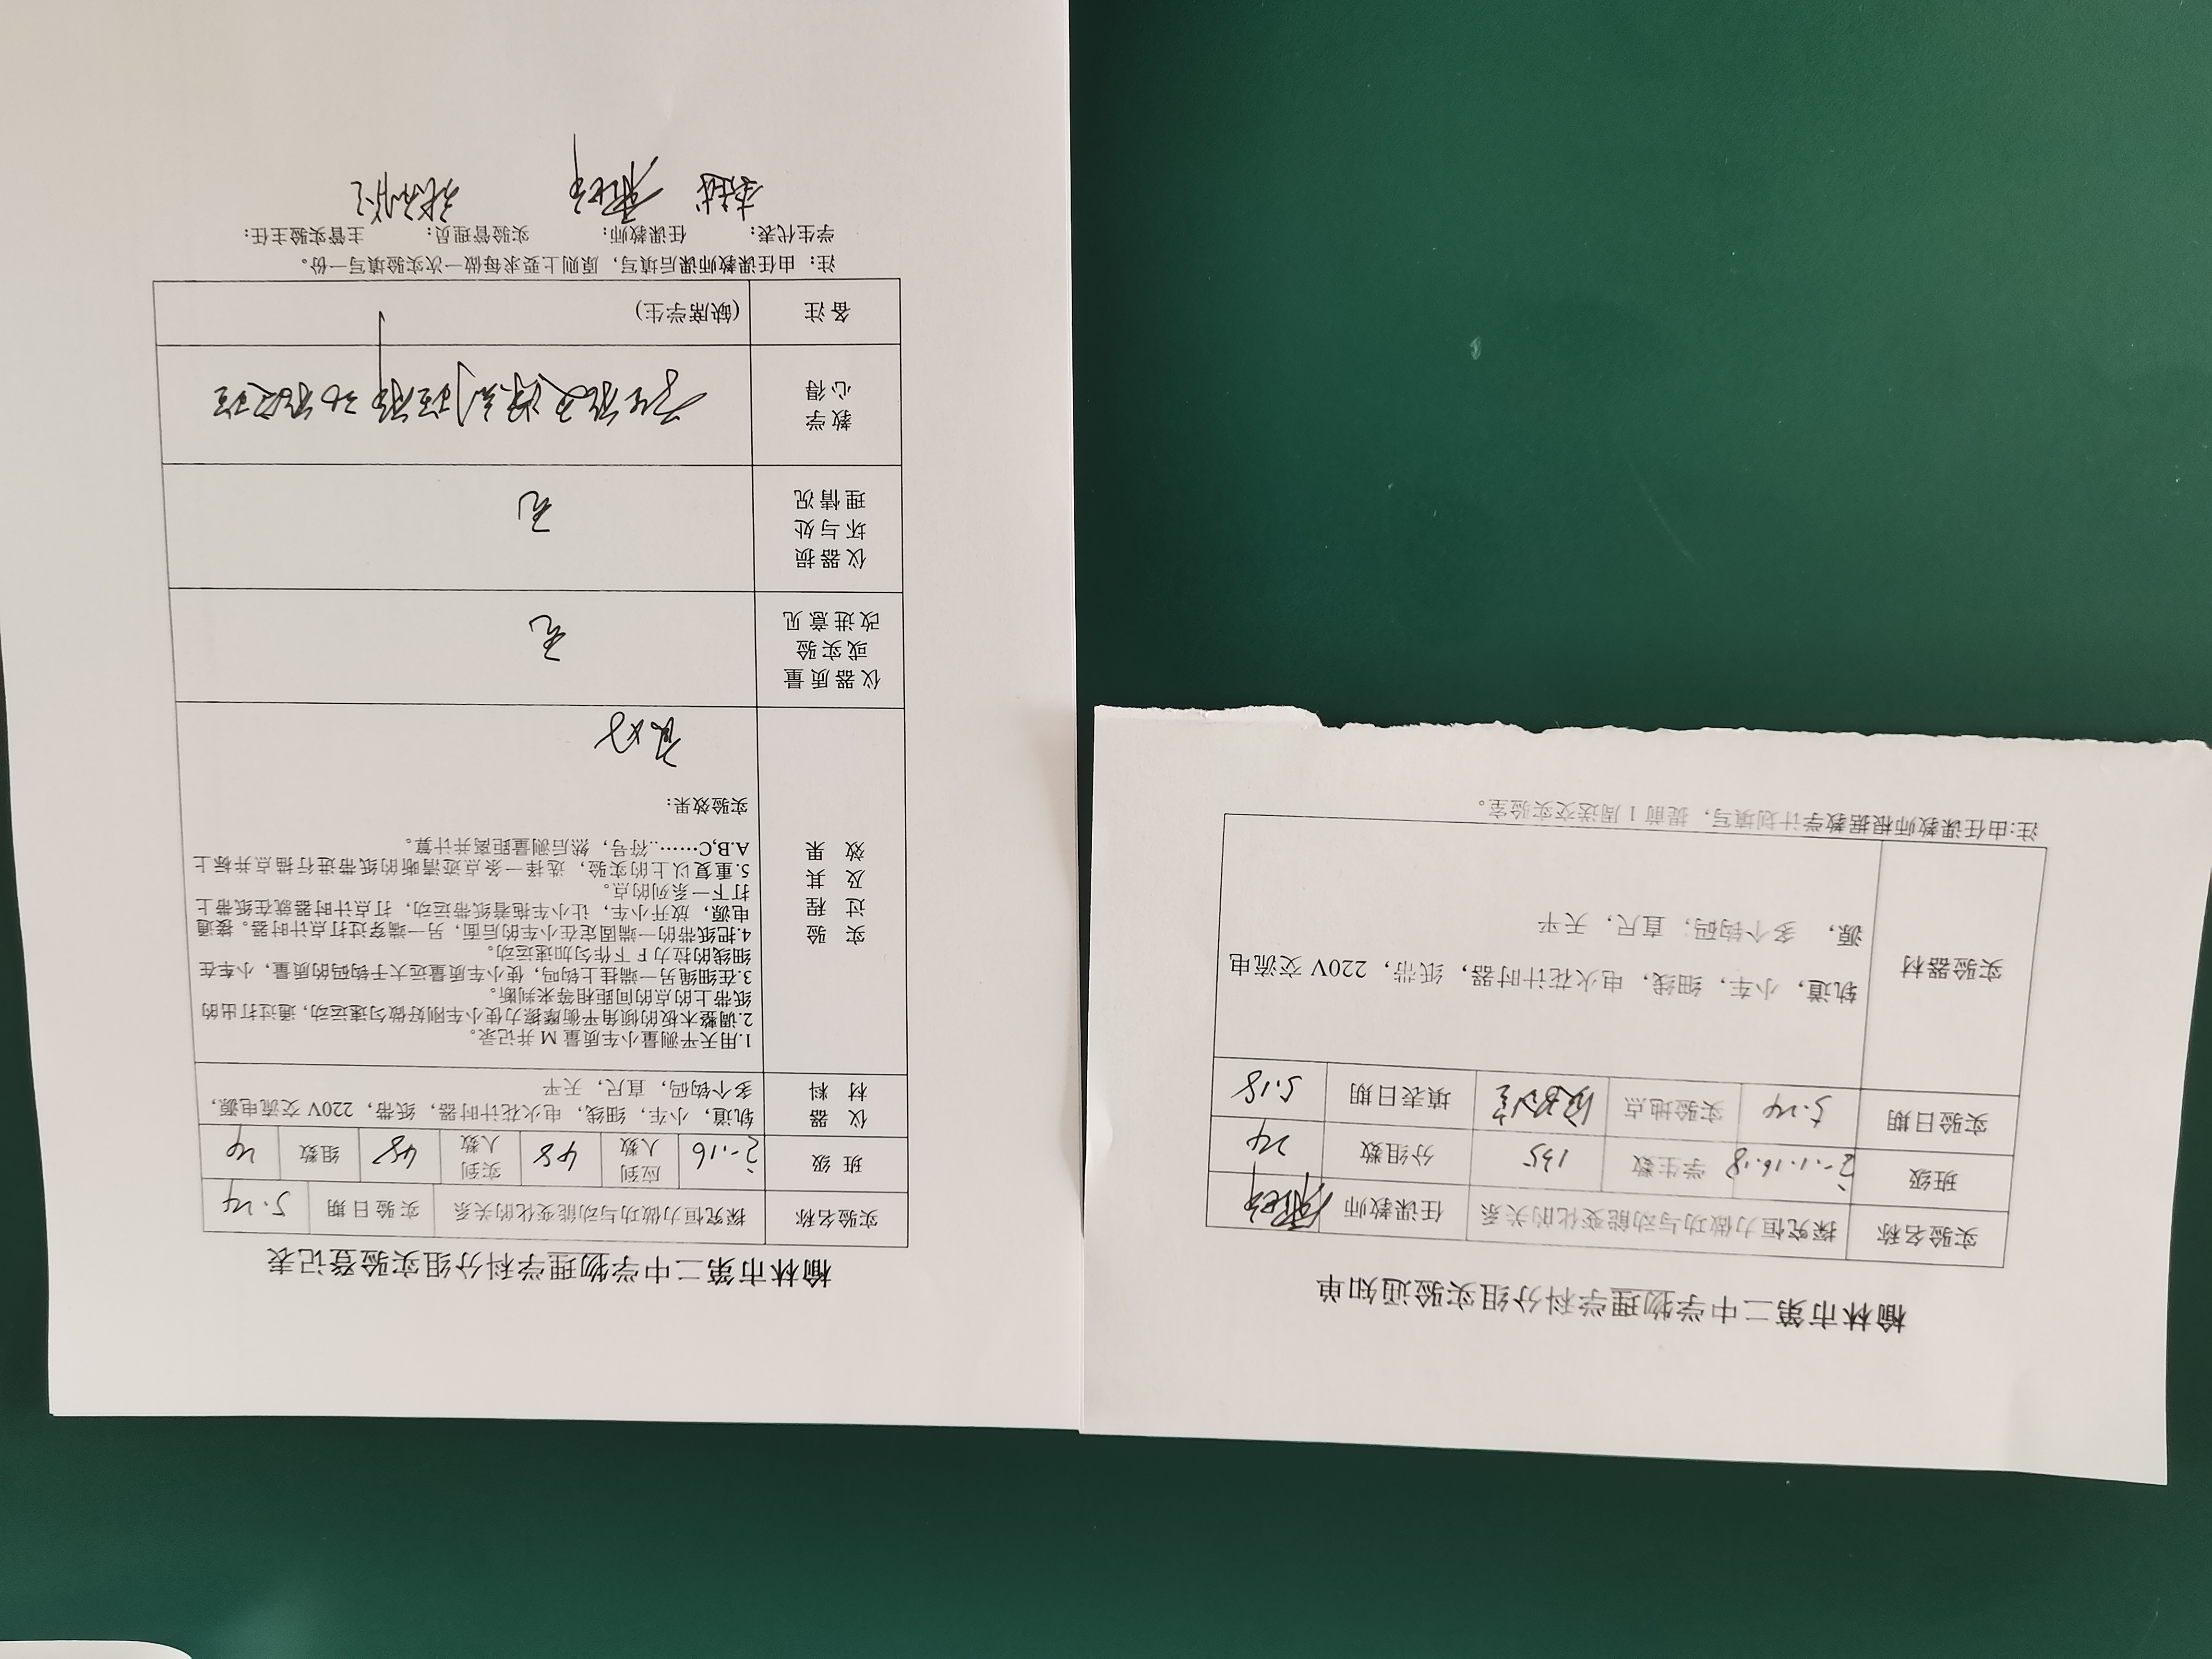 榆林市第二中学物理学科分组实验通知单
实验名称 探究恒力做功与动能变化的关系 任课教师
班级 学生数 135 分组数 24
实验日期 5.24 实验地点 填表日期 5.18
实验器材 轨道，小车，细线，电火花计时器，纸带，220V 交流电
源， 多个钩码；直尺，天平
注:由任课教师根据教学计划填写，提前 1 周送交实验室。
榆林市第二中学物理学科分组实验登记表
实验名称 探究恒力做功与动能变化的关系 实验日期 5.24
班级 应到人数 48 实到人数 48 组数
仪器材料 轨道，小车，细线，电火花计时器，纸带，220V 交流电源，
多个钩码，直尺，天平
实验过程及其效果
1.用天平测量小车质量 M 并记录。
2.调整木板的倾角平衡摩擦力使小车刚好做匀速运动，通过打出的
纸带上的点的间距相等来判断。
3.在细绳另一端挂上钩吗，使小车质量远大于钩码的质量，小车在
细线的拉力 F 下作匀加速运动。
4.把纸带的一端固定在小车的后面，另一端穿过打点计时器。接通
电源，放开小车，让小车拖着纸带运动，打点计时器就在纸带上
打下一系列的点。
5.重复以上的实验，选择一条点迹清晰的纸带进行描点并标上
A.B,C……..符号，然后测量距离并计算。
实验效果：
良好
仪器质量或实验改进意见 无
仪器损坏与处理情况 无
教学心得
备注 (缺席学生)
注：由任课教师课后填写，原则上要求每做一次实验填写一份。
学生代表： 任课教师： 实验管理员： 主管实验主任：